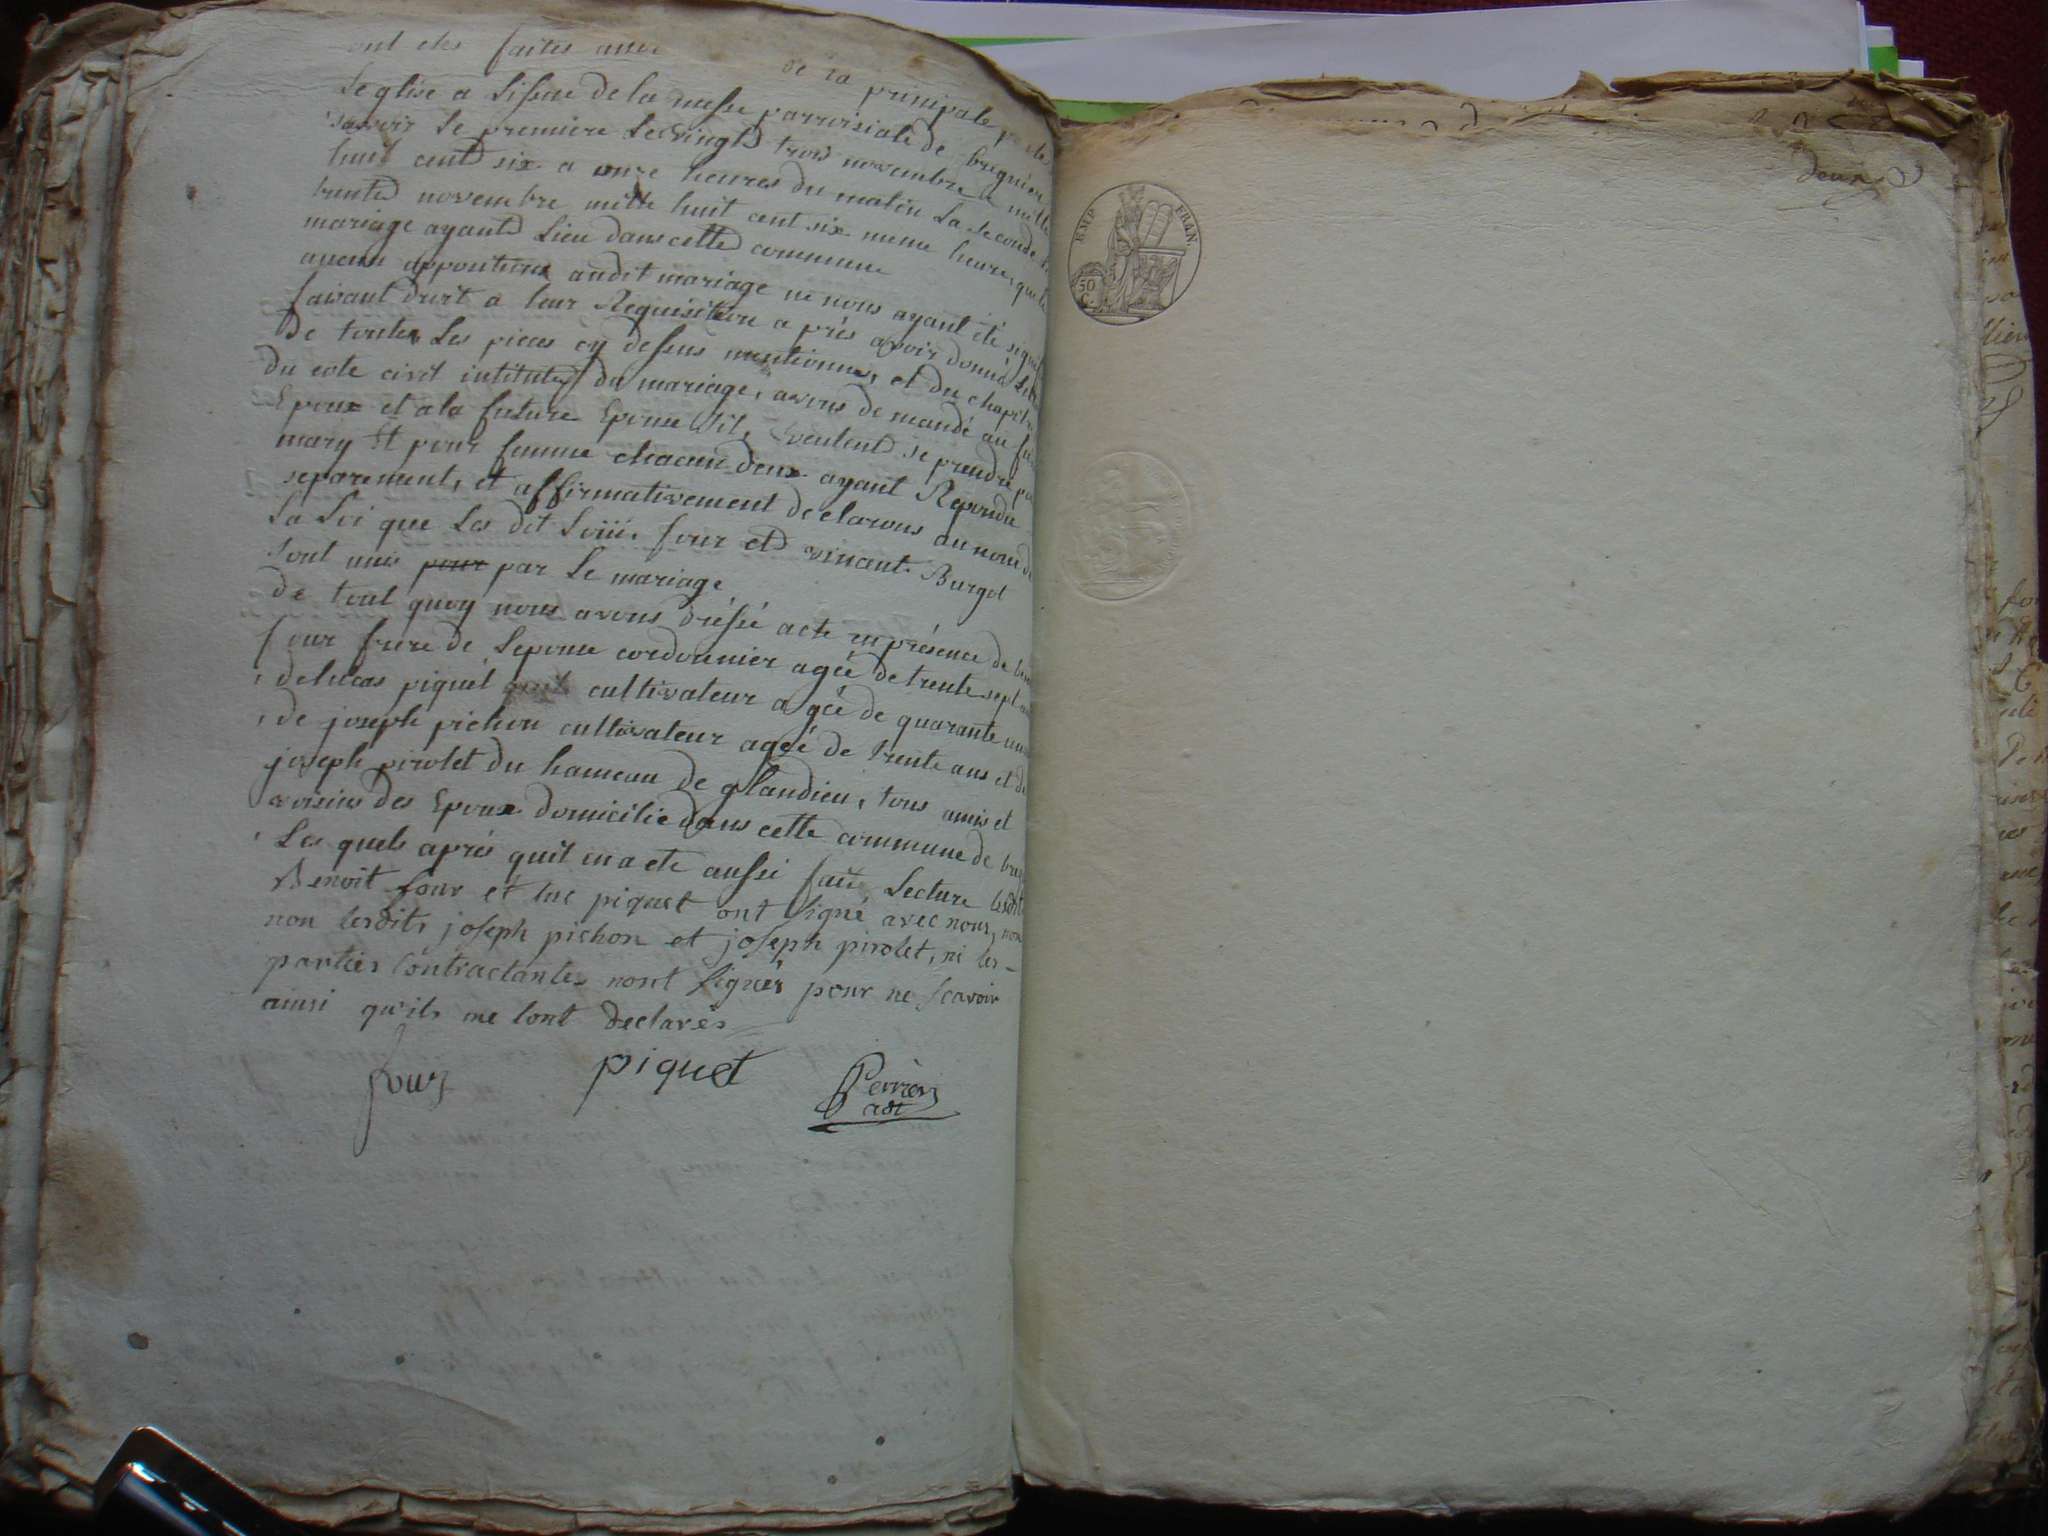 ont etes faites
de la principale
Leglise a Lissue de la messe parroisiale de bregnier
savoir Le premiere Le Vingt trois novembre mille
huit cent six a onze heures du matin La seconde
trente novembre mille huit cent six meme heure, que le
mariage ayant Lieu dans cette commune
aucun oppositions audit mariage ne nous ayant été
faisant droit a leur Requisition a près avoir donné
De toutes Les pieces cy dessus mentionnes, et du chapitre
Du code civil intitules du mariage, avons demandé au
Epoux et ala future Epouse sils veulent se prendre
mary Et pour femme chacun deux ayant Repondu
séparement, et affirmativement declarons au nom de
La Loi que Les dit four et vincent Burgot
Sont unis pour par Le mariage
De tout quoy nous avons dréssé acte en présence de
four frere de Lepouse cordonnier ageé de trente sept
, de lucas piquet cultivateur ageé de quarante
, de joseph pichon cultivateur ageé de trente ans et de
joseph pirolet du hameau de glandieu, tous amis et
voisins des Epoux domicilié dans cette commune de
Les quels aprés quil en a ete aussi fait Lecture lesdits
Benoit four et luc piquet ont signé avec nous, non
non lesdits joseph pichon et joseph pirolet, ni les-
parties Contractantes nont signés pour ne scavoir
ainsi qu'ils me lont declarés
four piquet Perrier
adt
deux
EMP. FRAN.
50
C.